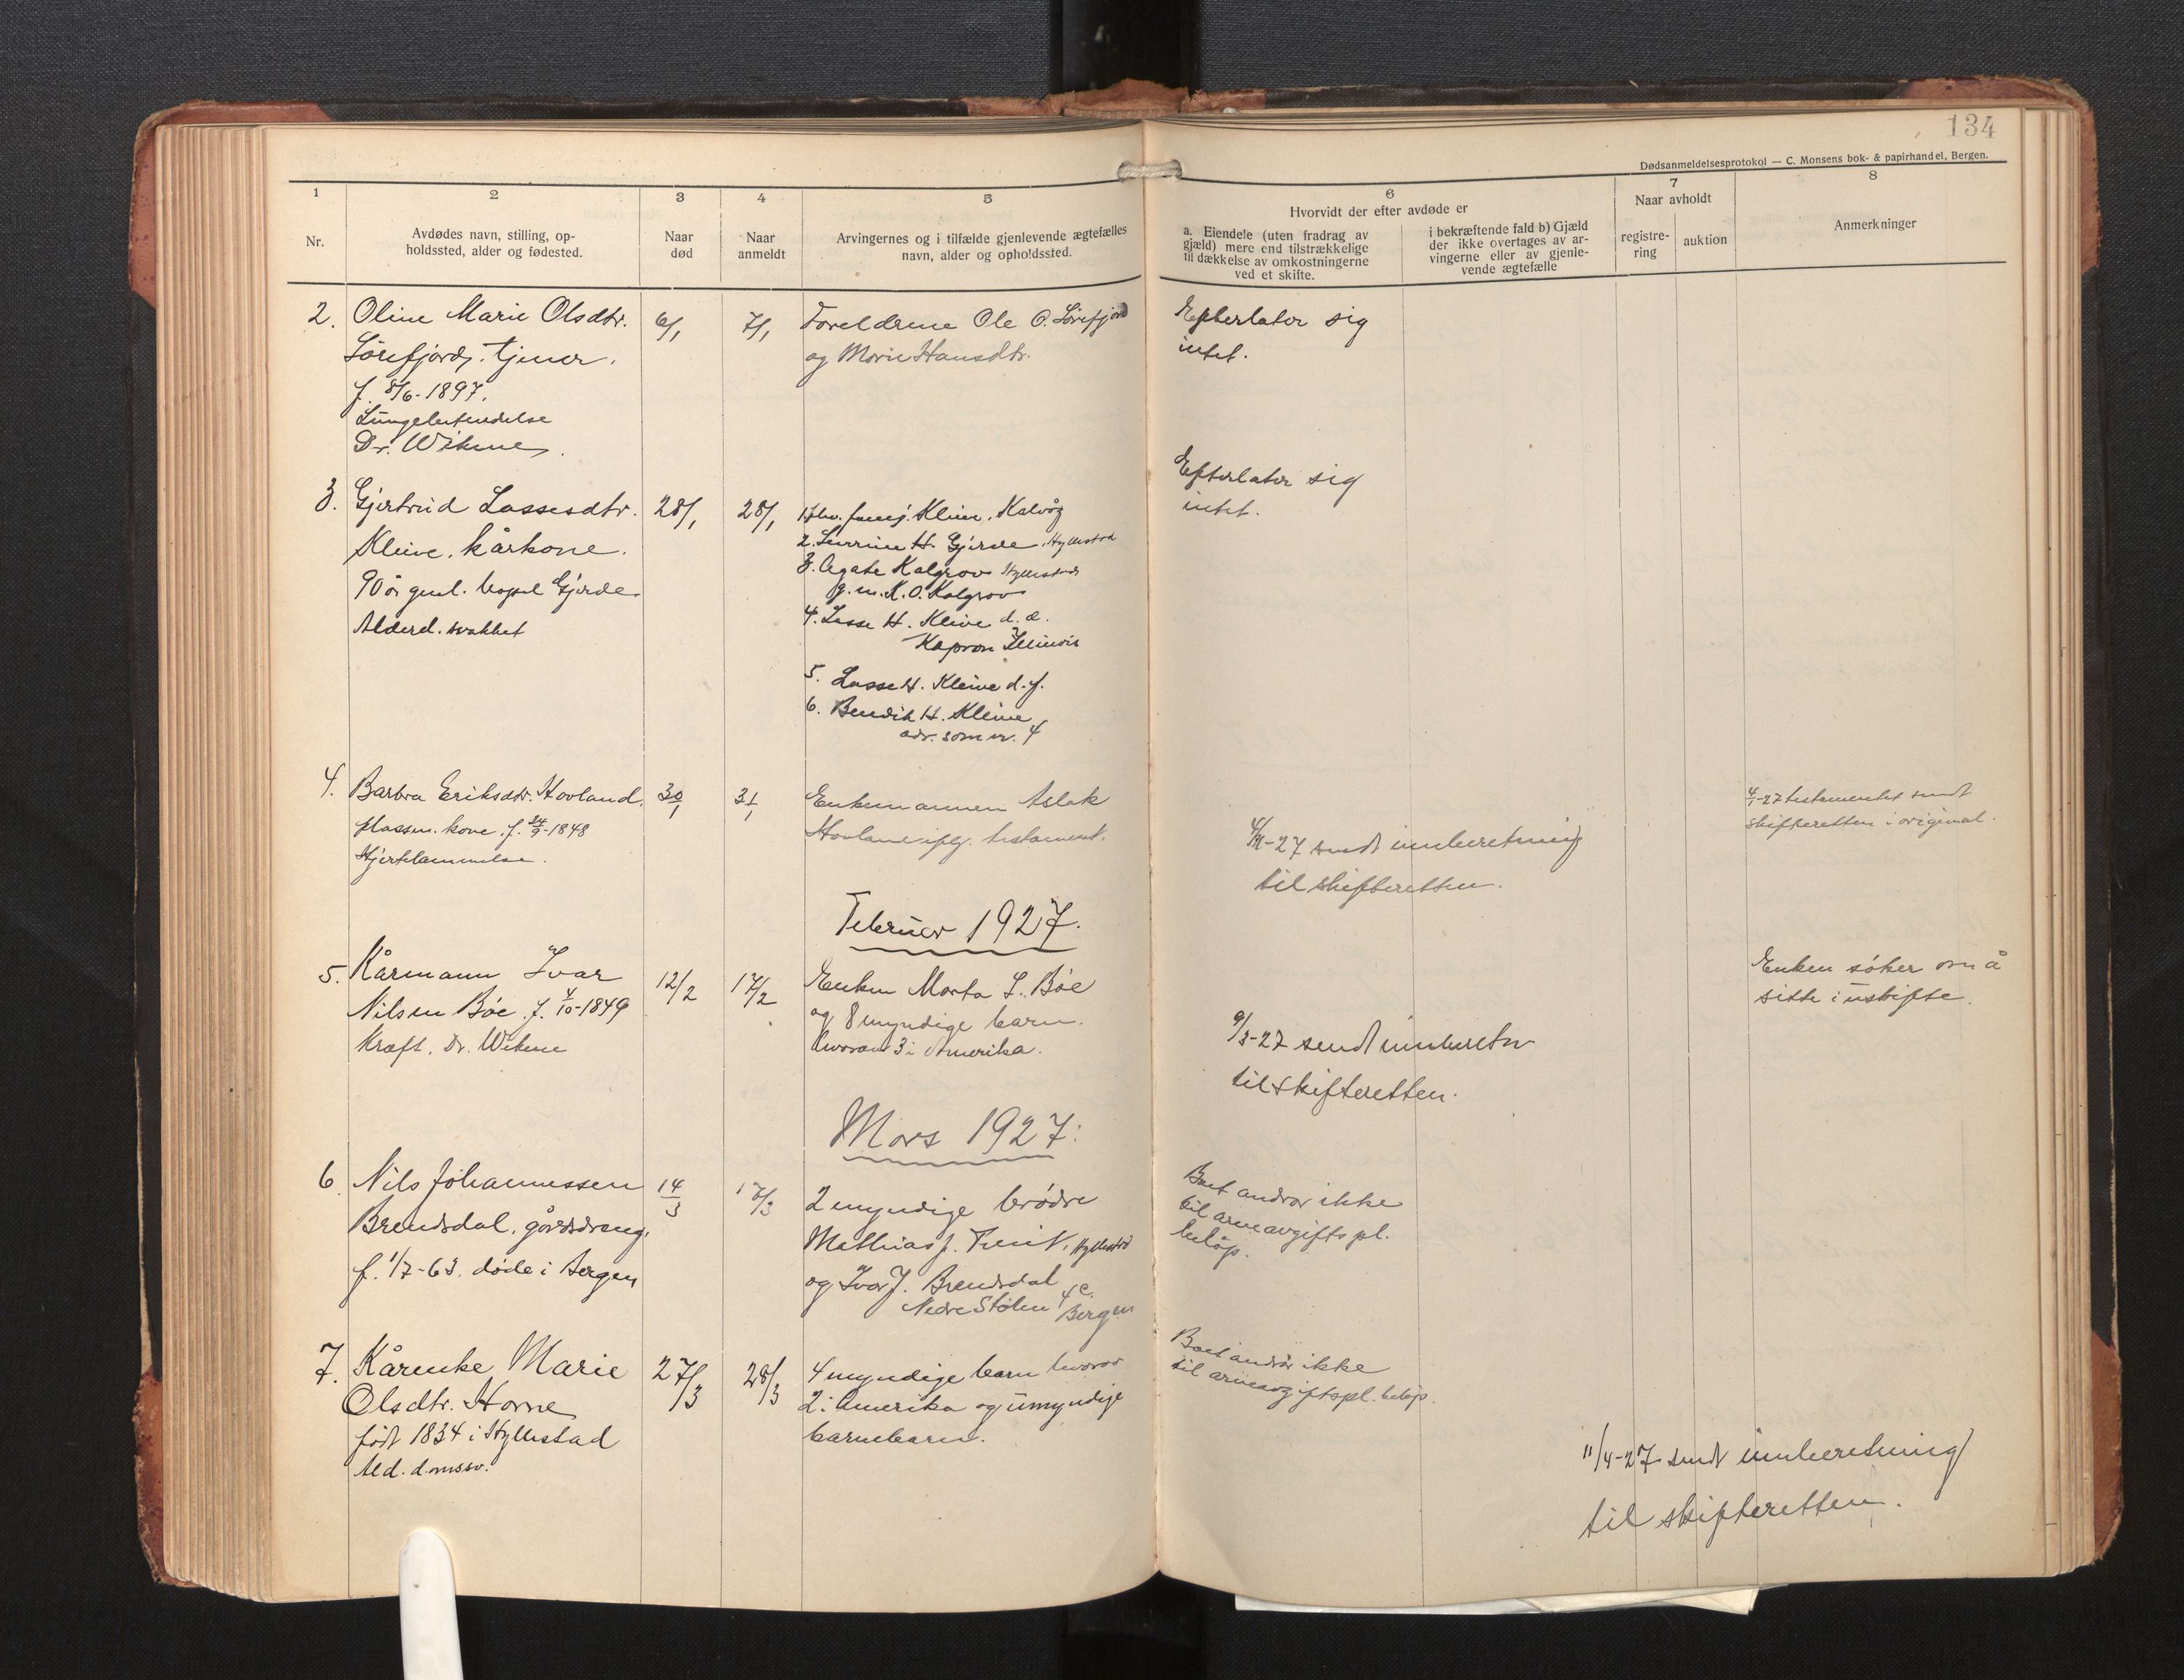 134
Dødsanmeldelsesprotokol — C. Monsens bok- & papirhandel, Bergen.
1
2
3
4
5
6
7
8
Nr.
Avdødes navn, stilling, op-
holdssted, alder og fødested.
Naar
død
Naar
anmeldt
Arvingernes og i tilfælde gjenlevende ægtefælles
navn, alder og opholdssted.
Hvorvidt der efter avdøde er
a. Eiendele (uten fradrag av
gjæld) mere end tilstrækkelige
til dækkelse av omkostningerne
ved et skifte.
i bekræftende fald b) Gjæld
der ikke overtages av ar-
vingerne eller av gjenle-
vende ægtefælle
Naar avholdt
registre-
ring
auktion
Anmerkninger
2. Oline Marie Olsdtr.
Sørefjord, tjener.
f. 8/6-1897.
Lungebetendelse
Dr. Wikne
6/1
7/1
Foreldrene Ole O. Sørefjord
og Marie Hansdtr.
Efterlater sig
intet.
3. Gjertrud Lassesdtr.
Kleive. kårkone.
90 år gml. bopel Gjerde
Alderd. svakhet
28/1
28/1
Kleive, Kalvåg
2. H. Gjerde, Hyllestad
3. Agate Kolgrov Hyllestad
g. m. K. O. Kolgrov
4. Lasse H. Kleive d. e.
5. Lasse H. Kleive d. y.
6. Bendik H. Kleive
adr. som nr. 4
Efterlater sig
intet.
4. Barbra Eriksdtr. Hovland
plassm. kone. f. 24/9-1848
Hjertelammelse.
30/1
31/1
Enkemannen Aslak
Hovland iflg. testament.
-27 sendt innberetning
til skifteretten.
-27 testamentet sendt
skifteretten i original.
Februar 1927.
5. Kårmann Ivar
Nilsen Bøe. f. 4/10-1849
Kræft. Dr. Wikne
12/2
17/2
Enken Marta L. Bøe
og 8 myndige barn.
hvorav 3 i Amerika.
9/3-27 sendt innberetn
til skifteretten.
Enken søker om å
sitte i uskifte.
Mars 1927.
6. Nils Johannessen
Brendsdal, gårdsdreng,
f. 1/7-63. døde i Bergen
14/3
18/3
2 myndige brødre
Mathias J. Hyllestad
og Ivar J. Brendsdal
Nedre Stølen 4 c.
Bergen
Boet andrar ikke
til arveavgifts pl.
beløp.
7. Kårenke Marie
Olsdtr. Horne
født 1834 i Hyllestad
Ald. domssv.
27/3
28/3
4 myndige barn hvorav
2 i Amerika og umyndige
barnebarn.
Boet andrar ikke
til arveavgiftspl. beløp.
11/4-27 sendt innberetning
til skifteretten.